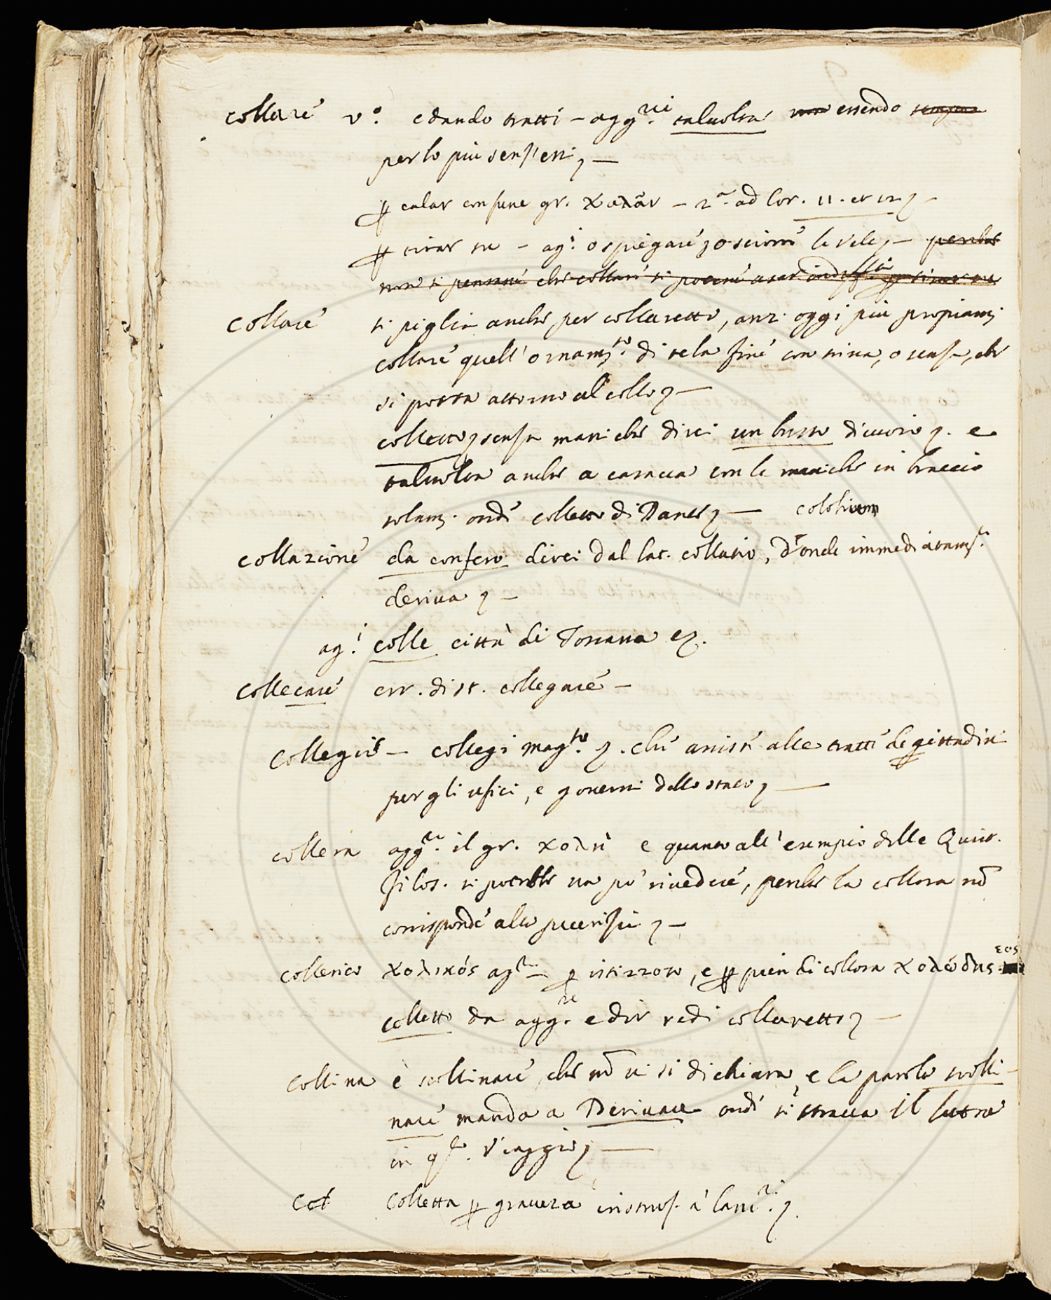 collare v.° e dando tratti - agg.rvi talvolta non essendo sempre
per lo più sens'essi -
calar con fune gr. χαλᾶν - 2.a ad Cor. 11. et
tirar su - ag.i o spiegare, o sciorre le vele - perche
non si pensasse che collare si potesse usar
Collare si piglia anche per collaretto, anzi oggi più propiam.
collare quell'ornam.to di tela fine con trina, o senza, che
si porta attorno al collo -
colletto senza maniche dicesi un busto di cuoio. e
talvolta anche a casacca con le maniche in braccio
solam. onde colletto di Dante - colobium
collazione da confero dicesi dal lat. collatio, d'onde immediatam.te
deriva -
ag.i colle città di Toscana
collecare err. di st. collegare -
Collegio - collegi mag.to che assiste alle tratte de cittadini
per gli ufici, e governi dello stato -
collera agg.rvi il gr. χολὴ e quanto all'esempio delle Quist.
filos. si potrebbe un po' rivedere, perche la collora nō
corrisponde alla
collerico χολικός ag.i - istizzoso, e pien di collora χολώδης εος
colletto da agg.re e dir vedi collaretto -
collina è scollinare, che nō vi si dichiara, e la parola scolli-
nare manda a Derivare onde si stracca il lettore
in q.to viaggio -
Col Colletta gravezza